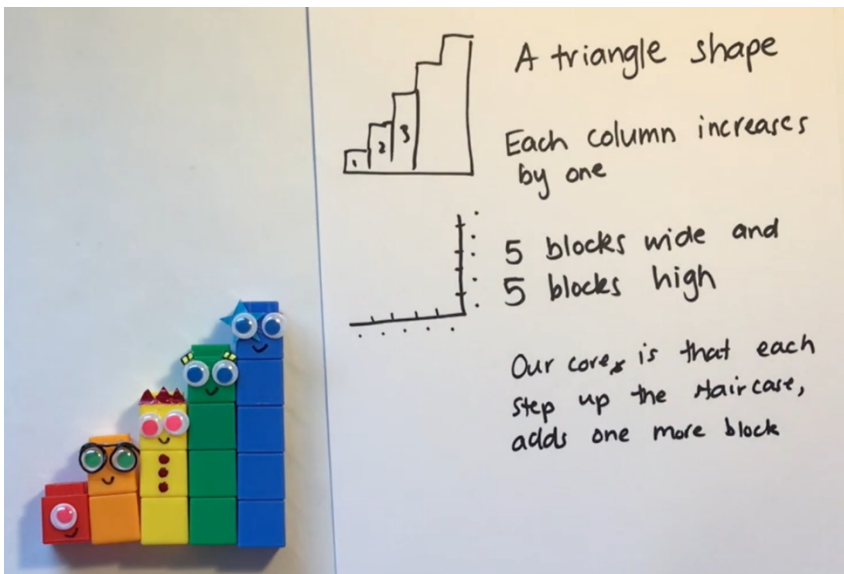 1
2
3
A triangle shape
Each column increases
by one
5 blocks wide and
5 blocks high
Our core is that each
step up the staircase,
adds one more block